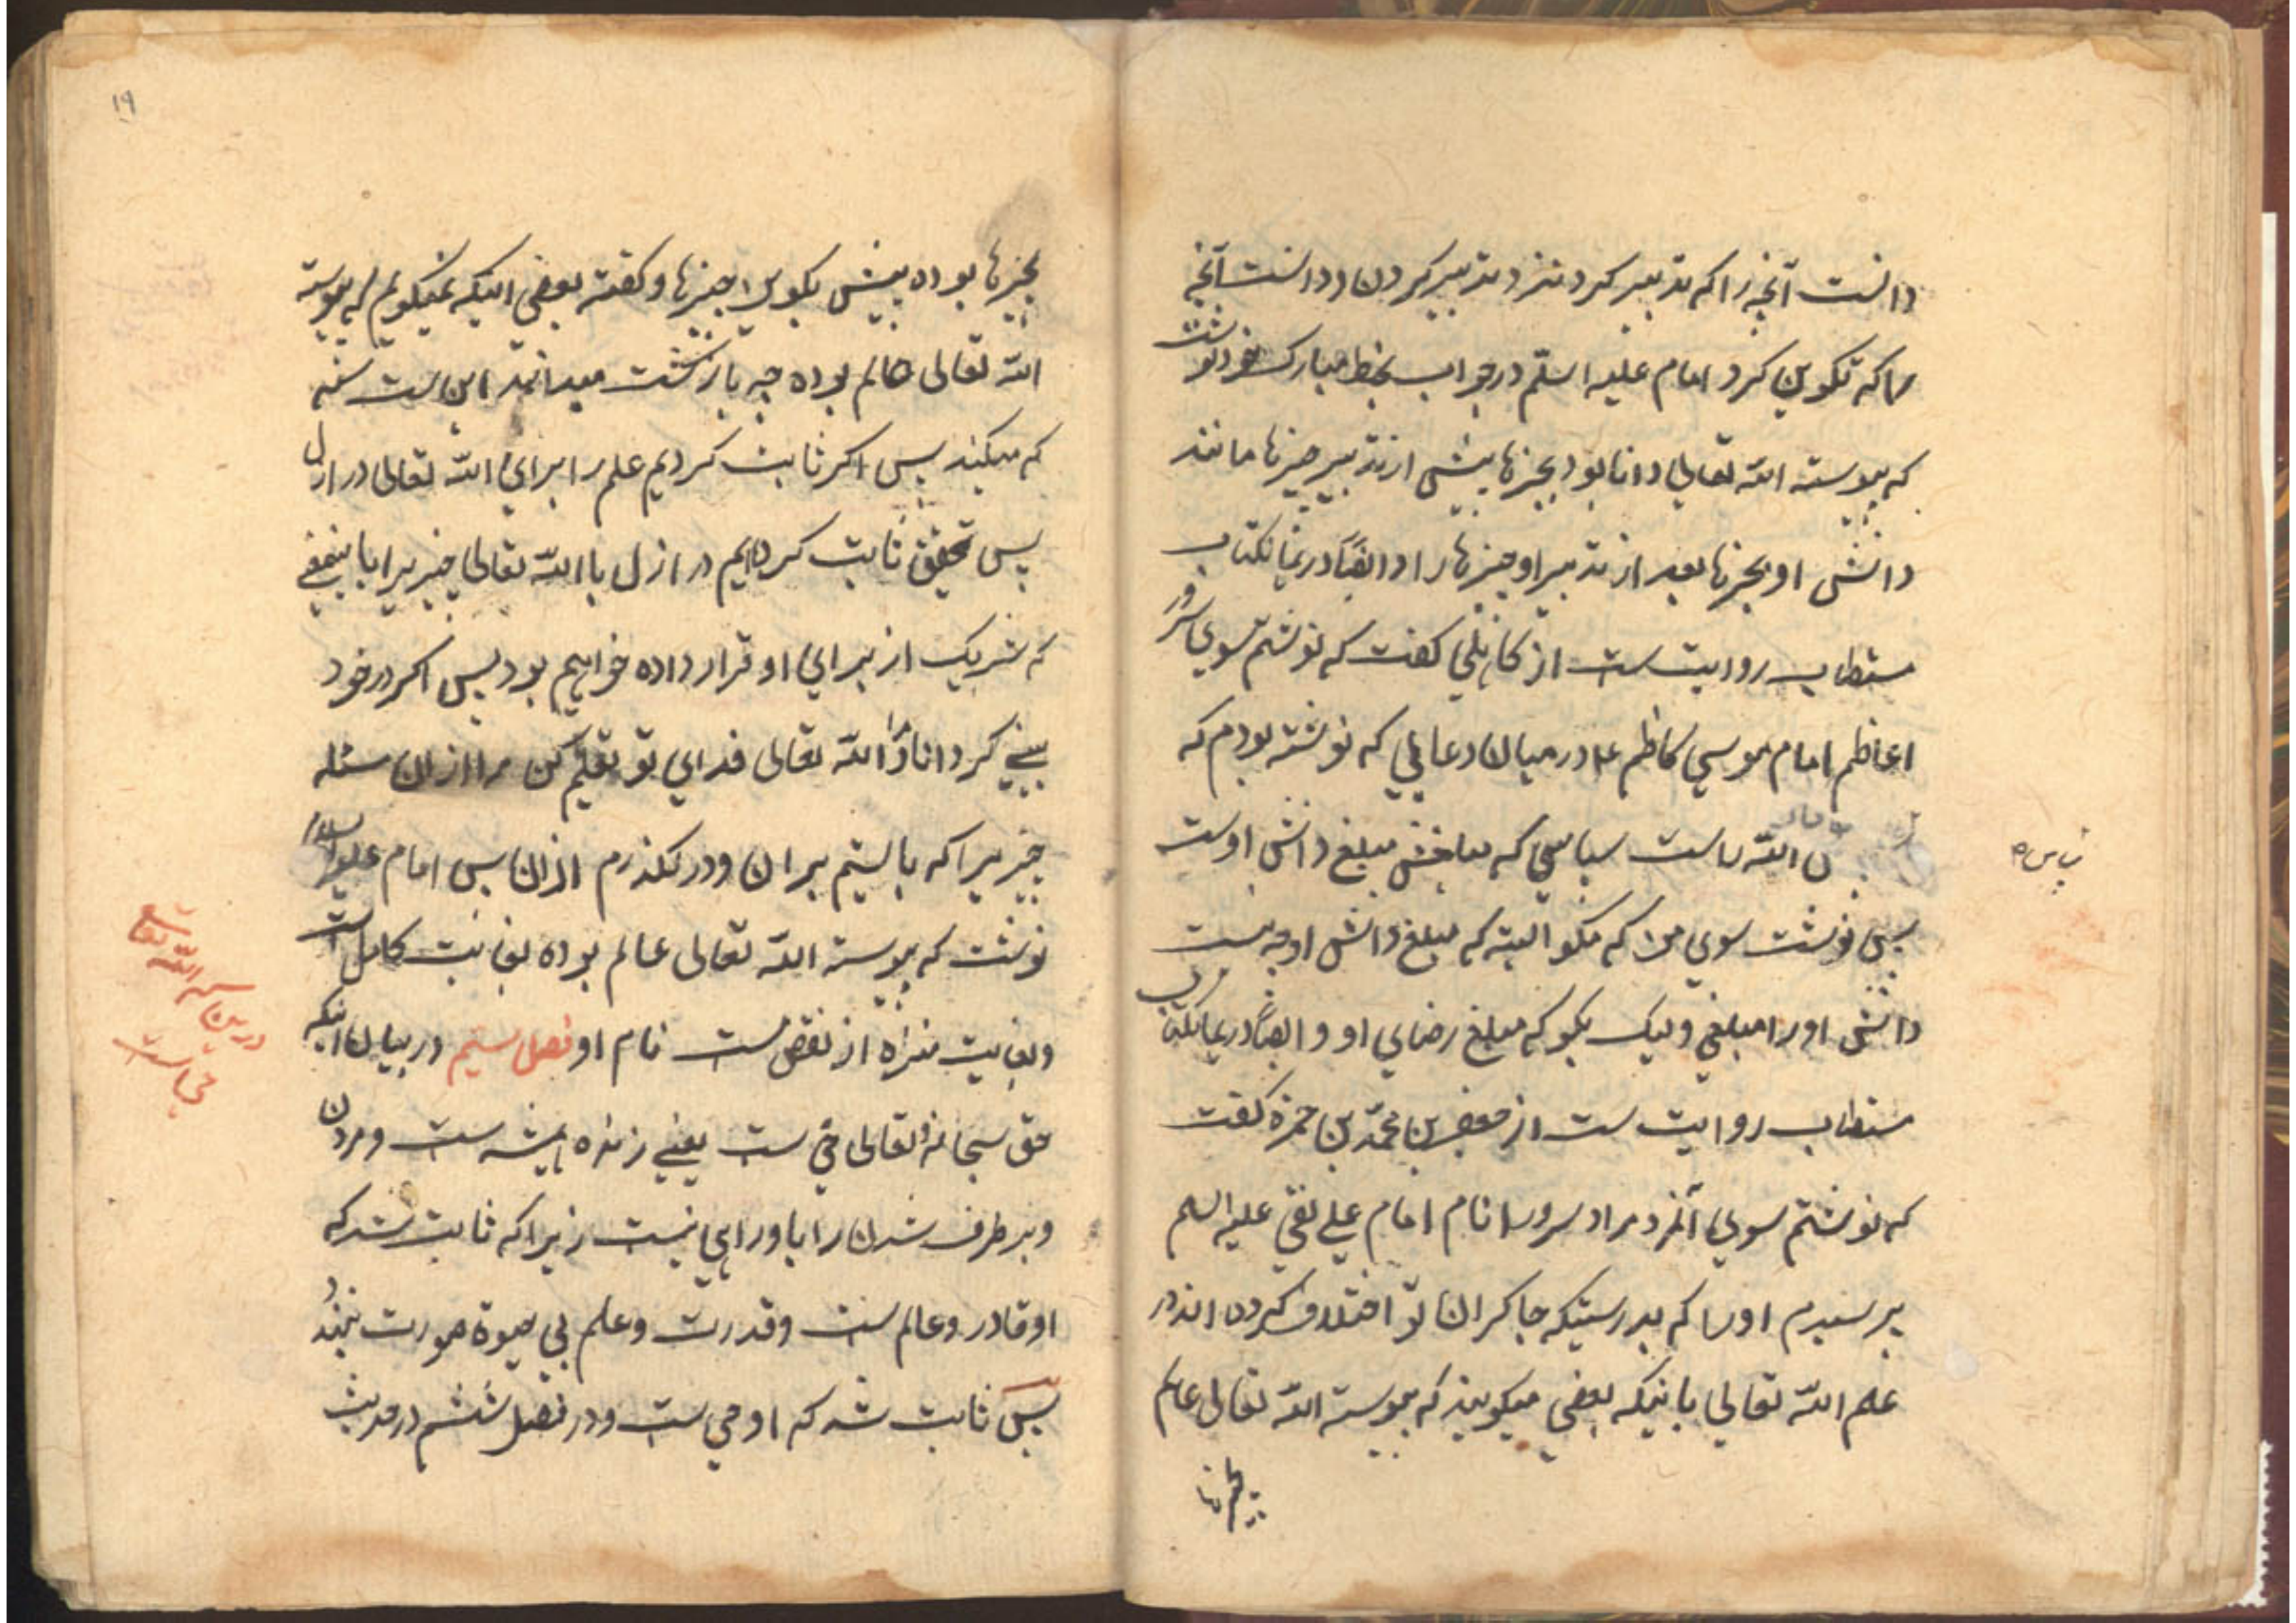 دانست آنچه را که تدبیر کرد نزد تدبیر کردن او دانست آنچه
را که تکوین کرد امام علیه السلم در جواب بخط مبارک خود نوشت
که پیوسته الله تعالی دانا بود بچیزها پیش از تدبیر چیزها مانند
دانش او بچیزها بعد از تدبیر او چیزها را و ایضًا در همان کتاب
مستطاب روایت ست از کاهلی کفت که نوشتم سوی سرور
اعاظم امام موسی کاظم ع در میان دعایی که نوشته بودم که
الله راست سپاسی که مبلغ دانش اوست
پ س ه
پس نوشت سوی من که مکو البته که مبلغ دانش او چه نیست
دانش او را مبلغی ولیک بکو که مبلغ رضای او و ایضًا در همان کتاب
مستطاب روایت ست از جعفر بن محمّد بن حمزه کفت
که نوشتم سوی آنمرد مراد سرور انام امام علی نقی علیه السلم
پرسیدم او را که بدرستیکه چاکران تو اختلاف کرده اند در
علم الله تعالی بانیکه بعضی میکویند که پیوسته الله تعالی عالم
بچیزها
۱۹
بچیزها بوده پیش تکوین چیزها و کفته بعضی اینکه نمیکویم که پیوسته
الله تعالی عالم بوده چه بازکشت میدانمد این ست
که میکند پس اکر ثابت کردیم علم را برای الله تعالی در ازل
پس تحقیق ثابت کرده‌ایم در ازل با الله تعالی چیزیرا باینمعنی
که شریک از برای او قرار داده خواهیم بود پس اکر در خود
بینی کرداناد مرا الله تعالی فدای تو تعلیم کن مرا از ان مسئله
چیزیرا که بایستیم بران و درنکذرم ازان پس امام علیه السلام
نوشت که پیوسته الله تعالی عالم بوده بغایت کامل است
و بغایت منزه از نقص ست نام او فصل ستیم در بیان اینکه
درین که الله تعالی
حی است
حق سبحانه و تعالی حی ست یعنی زنده همیشه ست و مردن
و برطرف شدن را باو راهی نیست زیرا که ثابت شد که
او قادر و عالم ست و قدرت و علم بی حیوة صورت نبندد
پس ثابت شد که او حی ست و در فصل ششم در حدیث